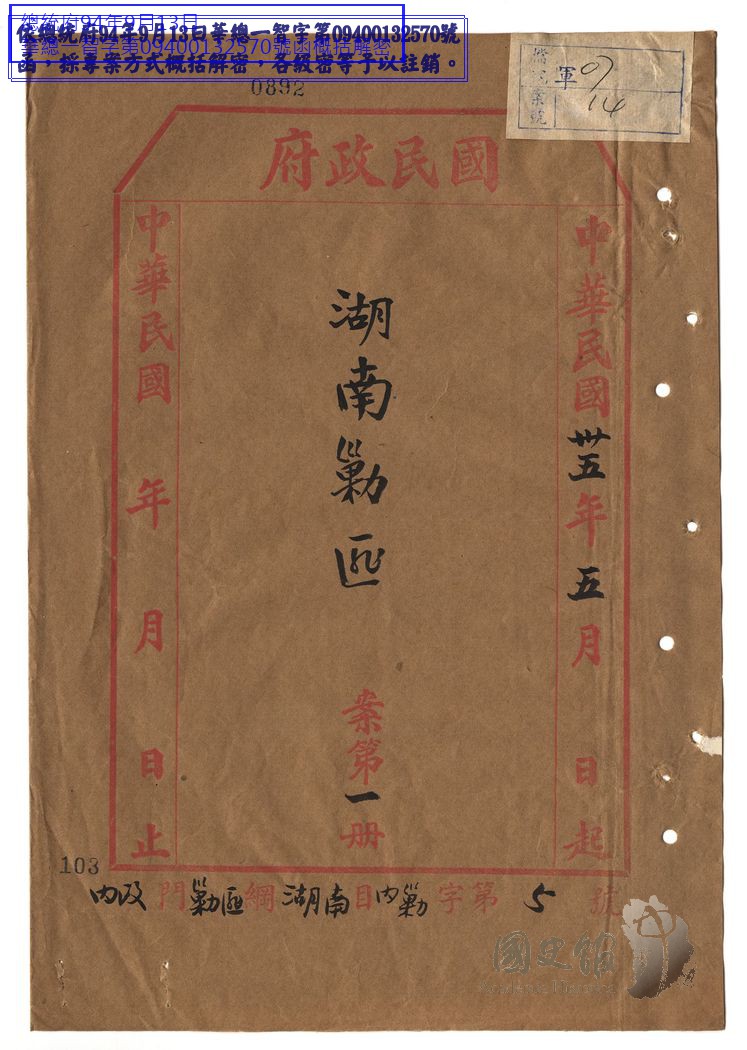 總統府94年9月13日
華總一智字第09400132570號函概括解密
依總統府94年9月13日華總一智字第09400132570號
函，採專案方式概括解密，各級密等予以註銷。
0892
舊記案號
軍07
14
國民政府
中華民國卅五年五月 日起
湖南剿匪
案第一册
中華民國 年 月 日止
103
內政門剿匪綱湖南目內剿字第5號
國史館